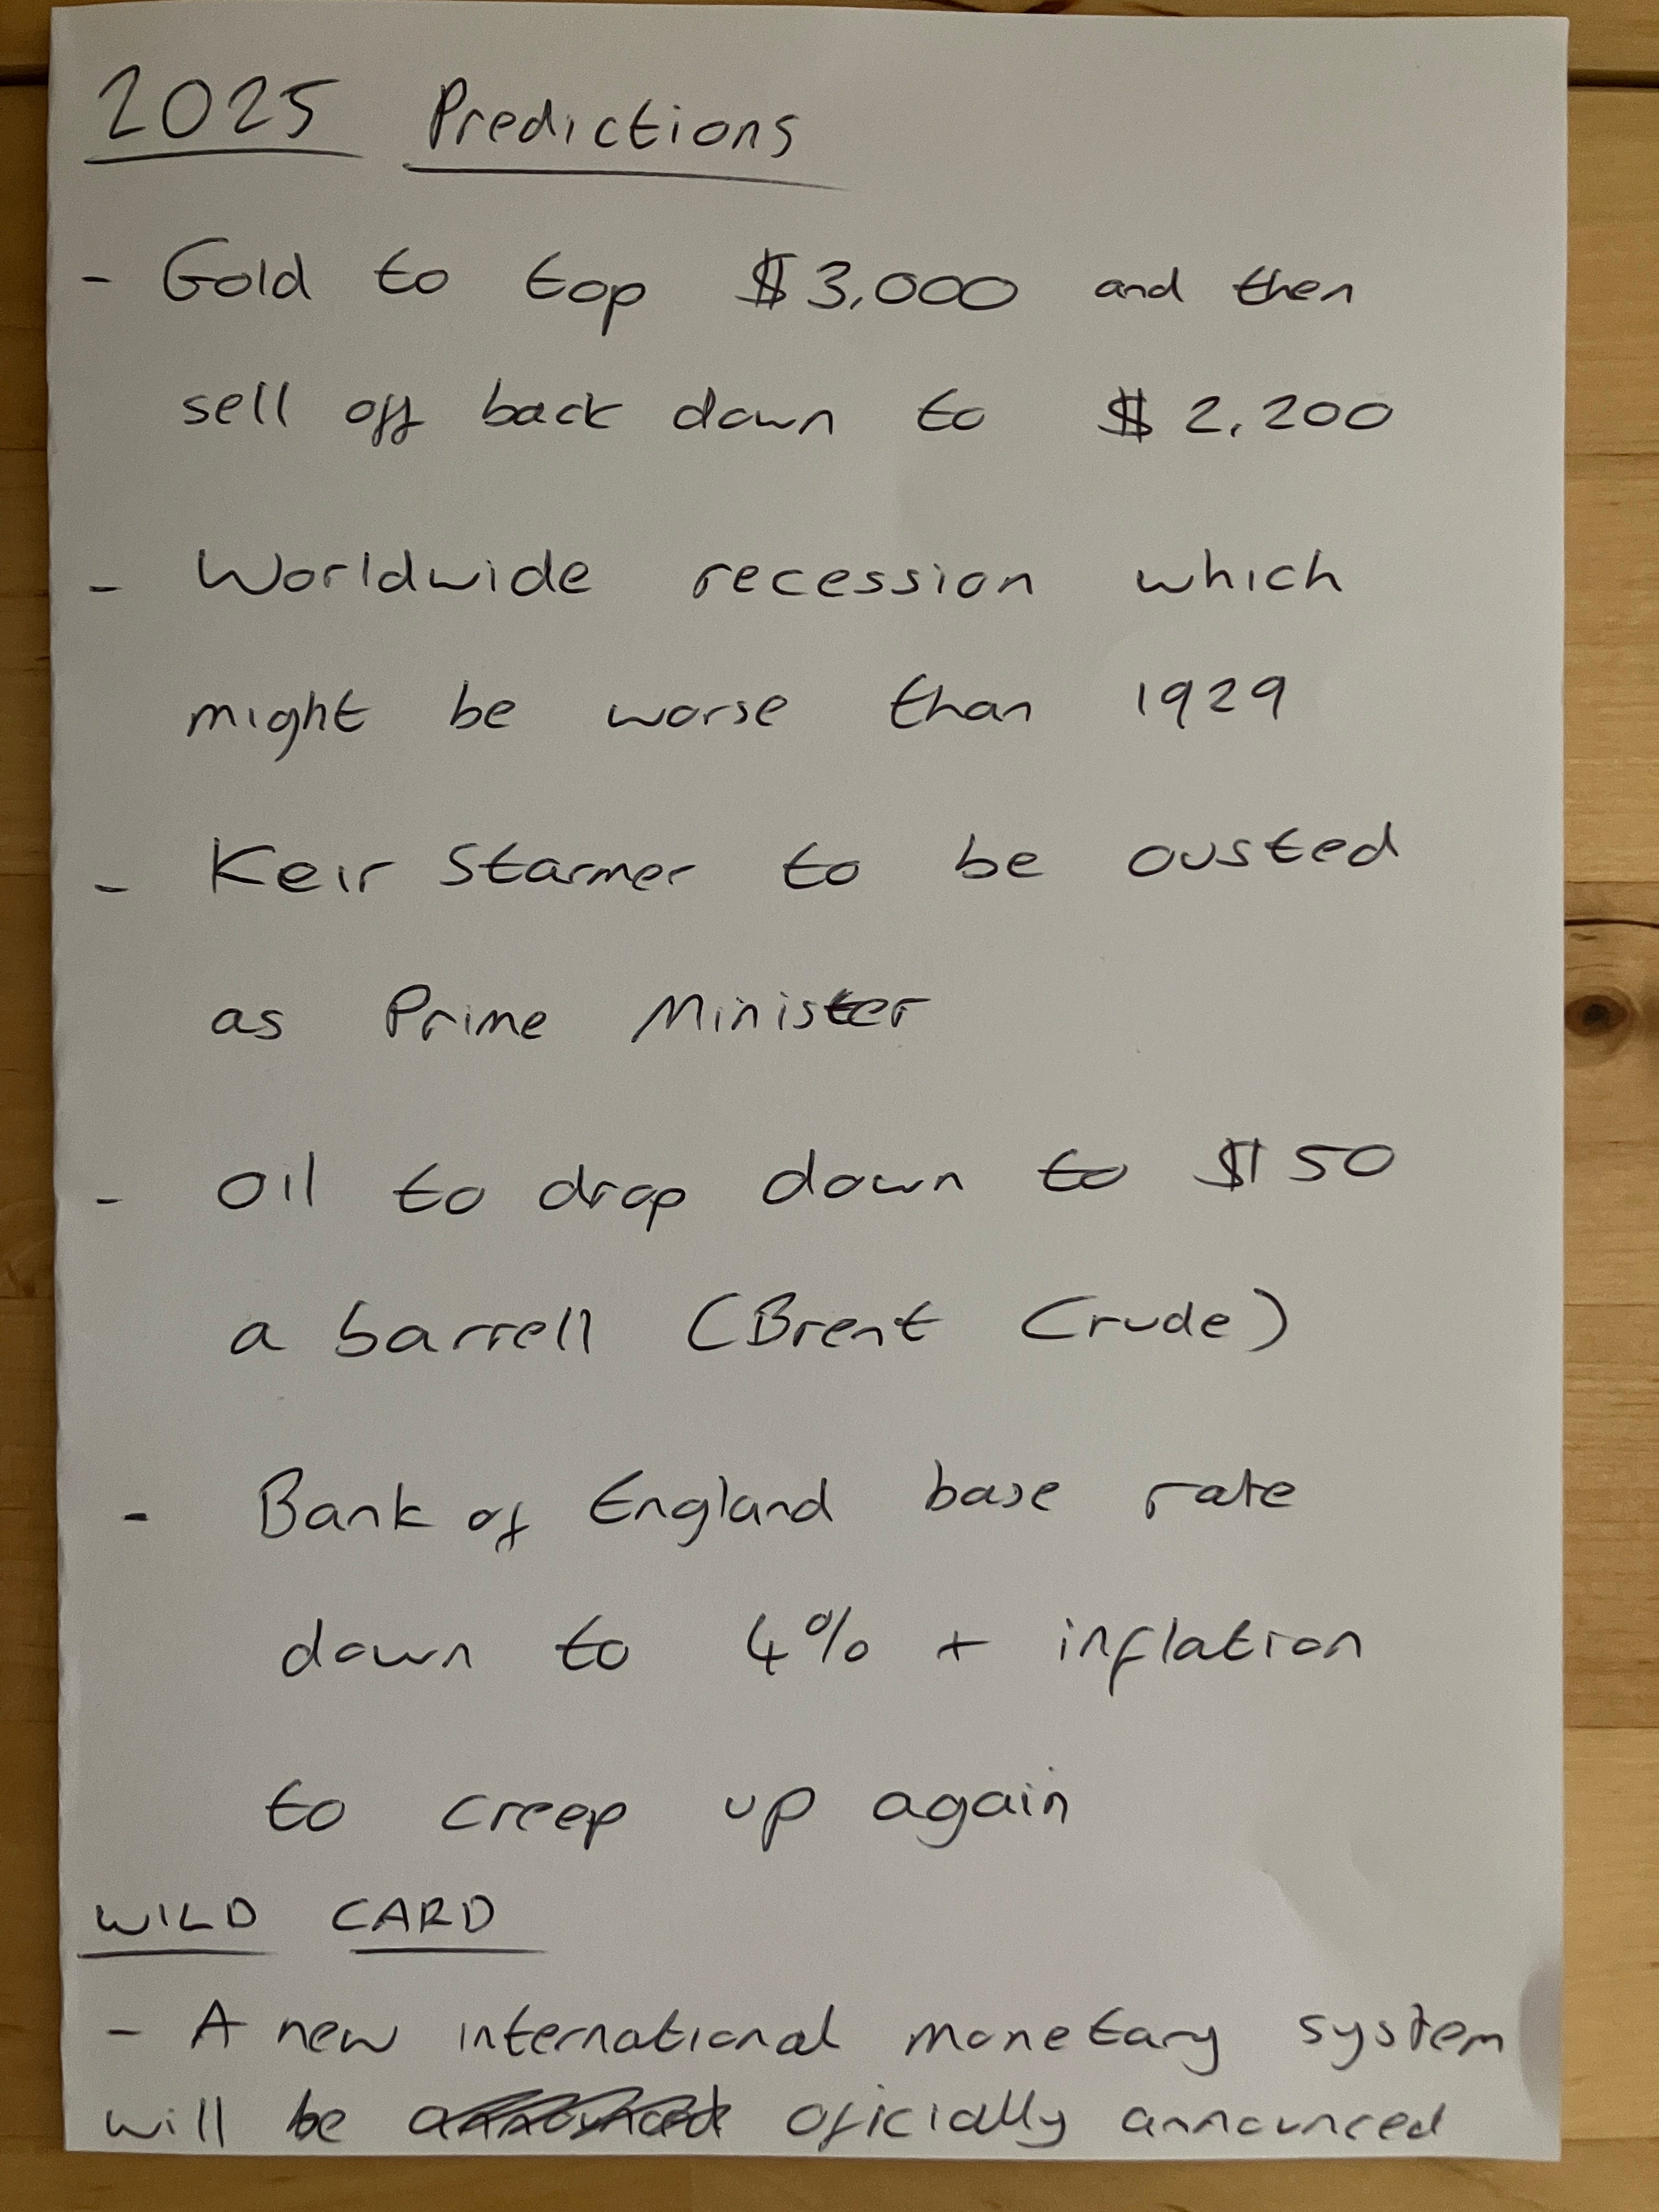 2025 Predictions
- Gold to top $3,000 and then
sell off back down to $2,200
- Worldwide recession which
might be worse than 1929
- Keir Starmer to be ousted
as Prime Minister
- Oil to drop down to $50
a barrell (Brent Crude)
- Bank of England base rate
down to 4% + inflation
to creep up again
WILD CARD
- A new international monetary system
will be oficially announced